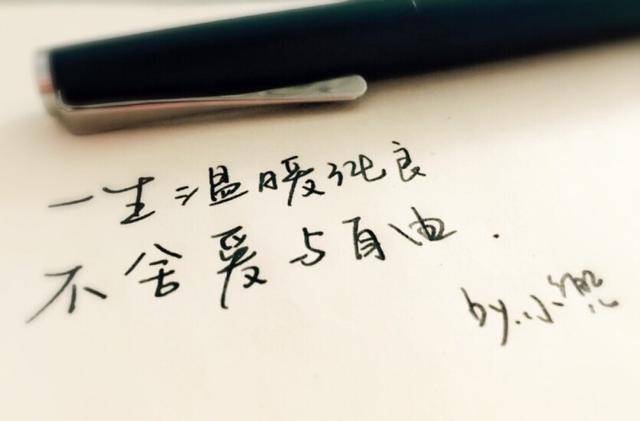 一生温暖纯良
不舍爱与自由.
by.小